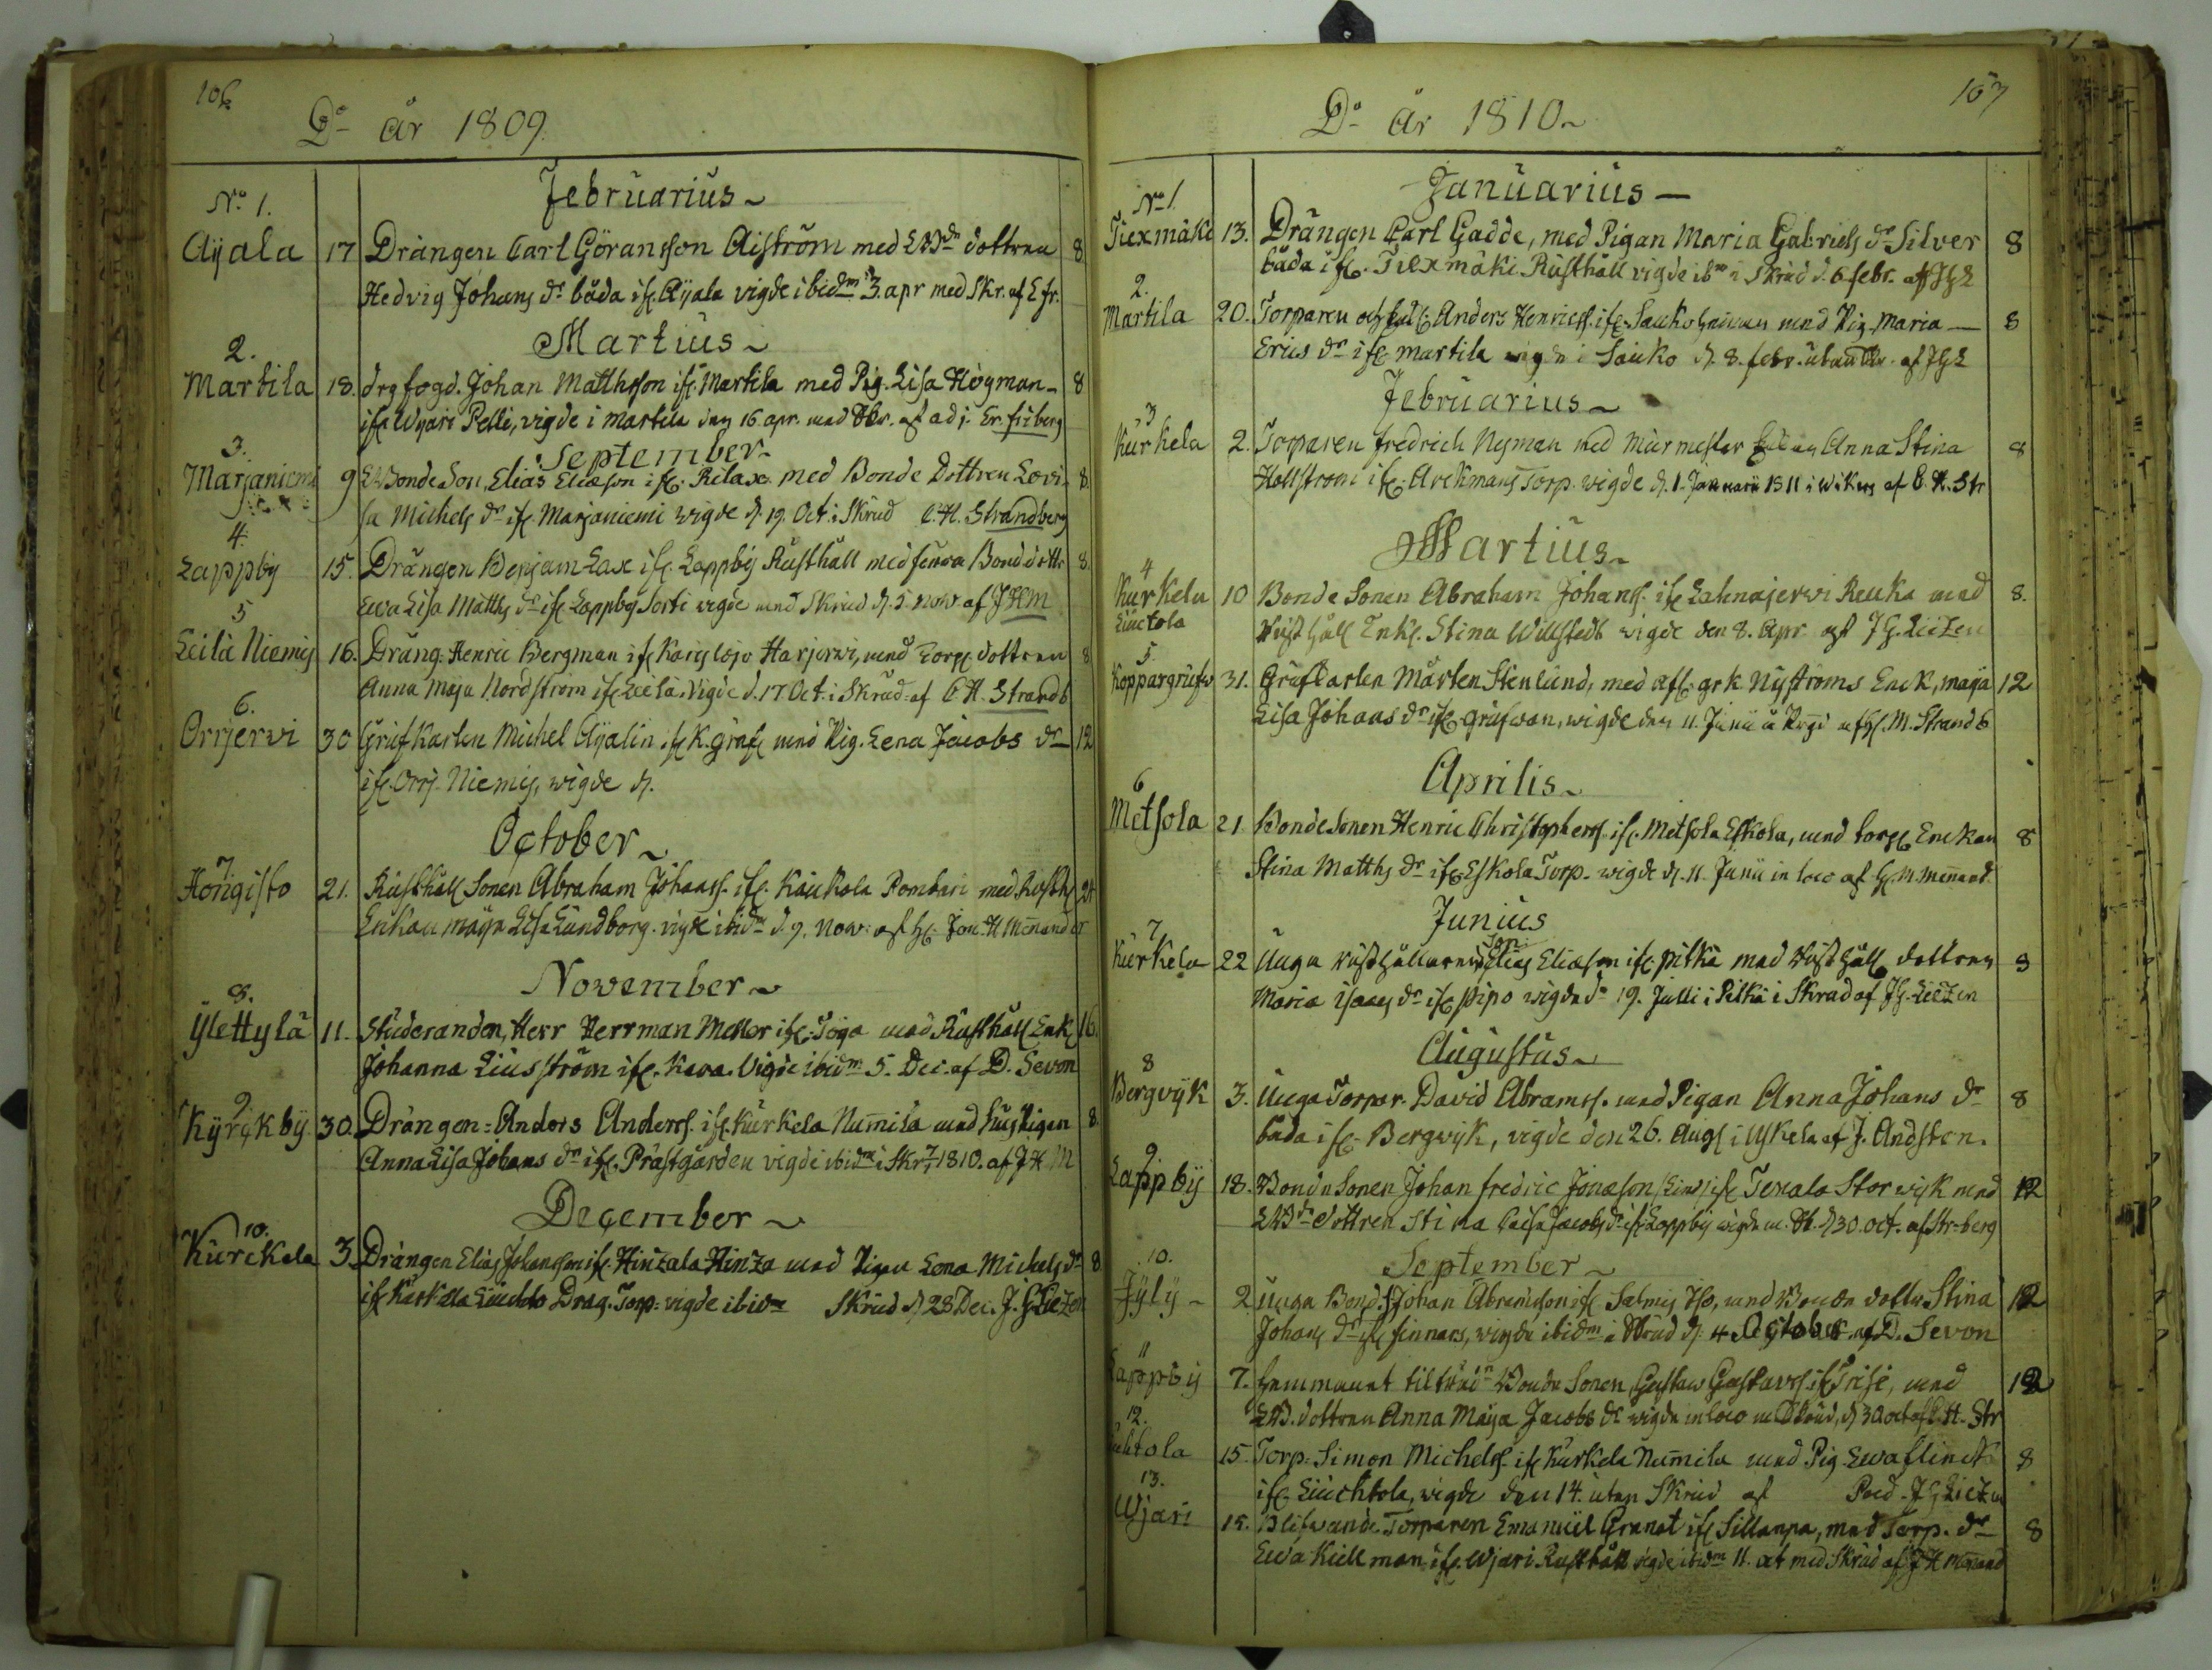 106
Do år 1809.
Februarius
No 1.
Ayala 17 Drängen Carl Göransson Aiström med LBdn dottren 8
Hedvig Johans dr båda ifr. Ayala vigde ibidm 3. apr med Skr. af E fr.
Martius
2.
Martila 18. drg fogd. Johan Matthsson ifr. Martila med Pig. Lisa Högman 8
ifr. Wyari Pelli, vigde i Martila den 16. apr. med Skr. af adj. Er. friberg
September
3.
Marjaniemi 9 Bonde Son, Elias Eliæson ifr. Rilax. med Bonde Dottren Lovi- 8.
sa Michels dr ifr. Marjaniemi wigde d. 19. Oct. i Skrud C. H. Strandberg
4.
Lappby 15. Drängen Benjam Lax ifr. Lappby Rusthåll med Bond dottr 8.
Ewa Lisa Matths dr ifr Lappby Sorti vigde med Skrud d. 5. Nov. af JHM
5
Leilä Niemis 16. Dräng. Henric Bergman ifr Karislojo Harjerwi, med Torp. dottren 8
Anna Maja Nordström ifr Leilä. Vigde d. 17 Oct. i Skrud. af C H. Strandb
6.
Orrjerwi 30 Grufkarlen Michel Ayalin ifr K. gruf med Pig. Lena Jacobs dr 12
ifr. Orrj. Niemis, wigde d.
October
7
Hongisto 21. Rusthåll Sonen Abraham Johanss. ifr. Kaukola Pombari med Rusth 24
Enkan maija Lisa Lundborg. vigde ibidm d. 9. Nov. af Jon. H Menander
November
8.
Ylettylä 11. Studeranden, Herr Herrman Meller ifr. med Rusthåll Enk 16.
Johanna Liusström ifr. Kara. Vigde ibidm 5. Dec. af D. Sevon
9
Kyrckby 30. Drängen Anders Anderss. ifr. Kurkela Numila med Pigan 8.
Anna Lisa Johans dr ifr. Prästgården vigde ibidm i Skr 1810. af JHM
December
10.
Kurckela 3. Drängen Elias Johansson ifr. Hinzala Hinza med Pigan Lena Michels dr 8
ifr Kurkela Drag. Torp. vigde ibidm Skrud d 28 Dec. J. G Lietzen
107
Do år 1810
Januarius
No 1
Tiexmäki 13. Drängen Carl Gadde, med Pigan Maria Gabriels dr Silver 8
båda ifr. Tiexmäki Rusthåll vigde ibm i Skrud d. 6 febr. af JGL
2.
Martila 20. Torparen och Anders Henricss. ifr. Sauko med Pig Maria 8
Erics dr ifr Martila wigde i Sauko d. 8. febr. utan Skr. af JGL
Februarius
3
Kurkela 2. Torparen fredrich Nyman med murmester Enkan Anna Stina 8
Hollstrom ifr. Arckmans Torp. wigde d. 1. Januarii 1811 i af C. H. Str
Martius
4
Kurkela 10 Bonde Sonen Abraham Johanss. ifr Lahnajerwi Reuka med 8.
Rusthåll Enk. Stina Willstedt vigde den 8. Apr. af J G. Lietzen
5.
Koppargrufw 31. Grufkarlen Mårten Stenlund, med afl. grk Nyströms Enck, maja 12
Lisa Johans dr ifr. grufwan, wigde den 11. Junii af M. Strandb
Aprilis
6
Metsola 21 Bonde Sonen Henric Christopherss. ifr. Metsola Eskola, med torp Enckan 8
Stina Matths dr ifr Eskola Torp. wigde d. 11. Junii in loco af M Menand.
Junius
7
Kurkela 22 Unga Rusthållaren Son Elias Eliæson ifr. pitkä med Rusthåll dottren 8
Maria isaacs dr ifr pipo wigde d. 19. Julli i Pitkä i Skrud af JG. Lietzen
Augustus
8
Bergwik 3. Unga Torpar. David Abramss. med Pigan Anna Johans dr 8
båda ifr. Bergwik, vigde den 26. Augs i Uskela af J. Andsten.
9.
Lappby 18. Bonde Sonen Johan fredric Jonæson ifr Tenala Storwik med 12
LBdn dottren Stina Caisa Jacobs dr ifr Lappby wigde m. Sk. d 30. oct. af Str-berg
September
10.
Jyly 2 Unga Bond. Johan Abramsson ifr Salmis Iso, med Bonde dottr Stina 12
Johans dr ifr finnars, wigde ibidm i Skrud d. 4 October af D. Sevon
11
Lappby 7. Bonde Sonen Gustaw Gustavss. ifr, med 12
LB. dottren Anna Maija Jacobs dr wigde in loco m Skrud, d 30 oct af C. H. Str
12.
Luhtola 15. Torp. Simon Michelss. ifr Kurkela Numila med Pig Ewa flinck 8
ifr. Liuchtola, wigde den 14. utan Skrud af Past. J G Lietzen
13.
Wjari 15. Blifwande Torparen Emanuel Granat ifr Sillanpä, med Torp. dr 8
Ewa Kiellman ifr. Wjari Rusthåll vigde ibidm 11. oct med Skrud af JH Menand